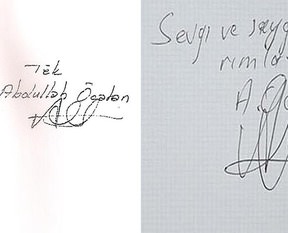 Tek
Abdullah Öcalan
Sevgi ve sayg
rımla
A Öc